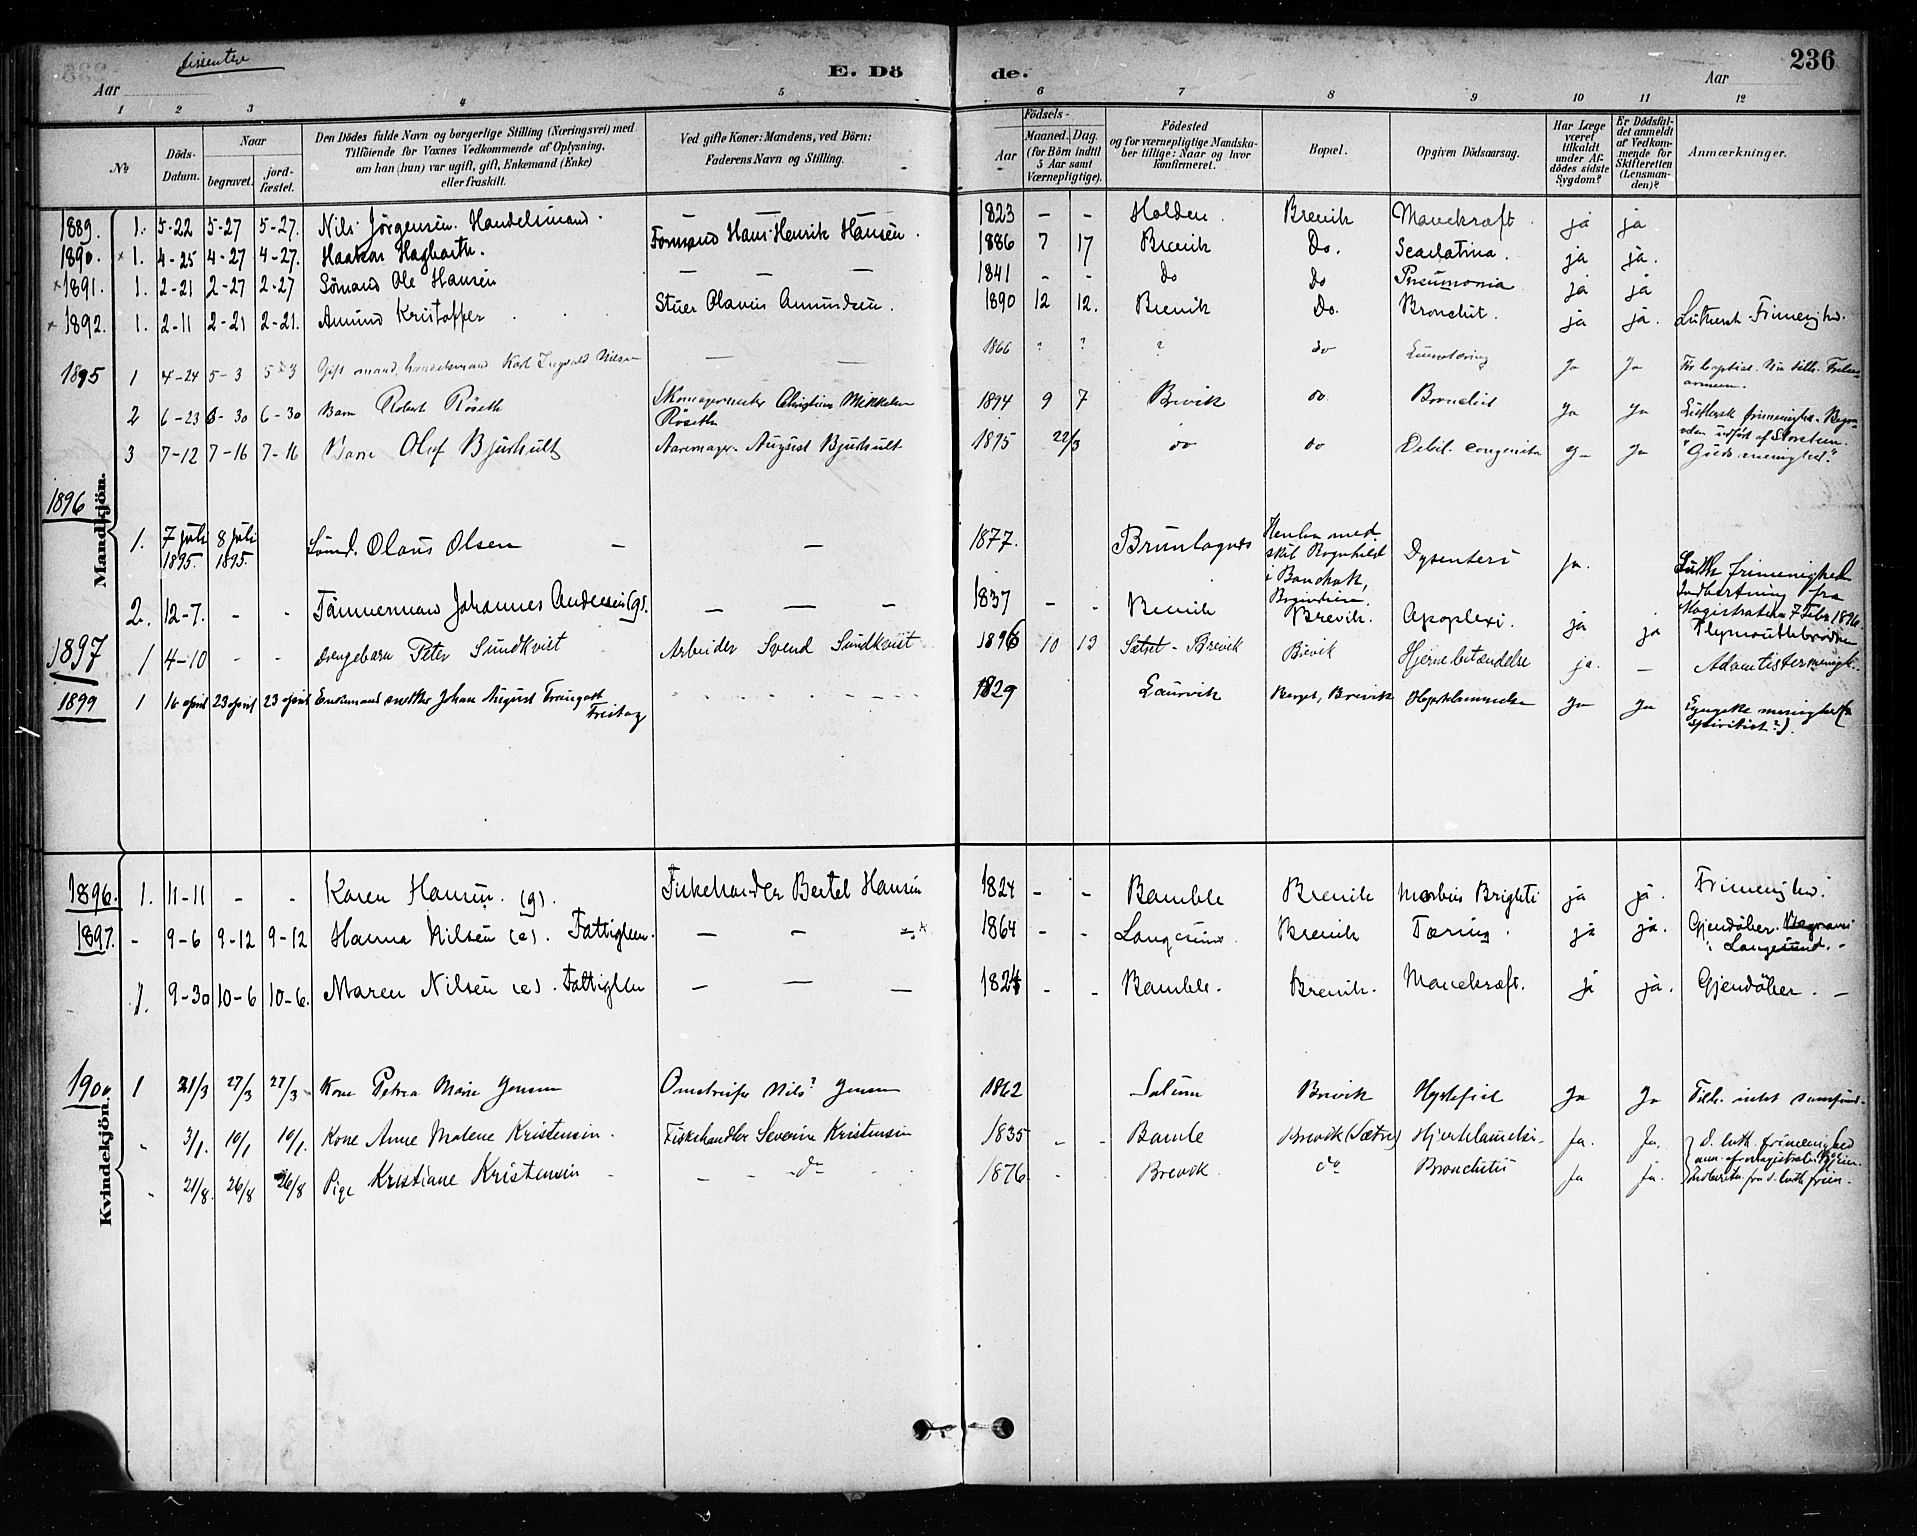 dissenter
E. Dö de.
236
Aar Aar
1 2 3 4 5 6 7 8 9 10 11 12
No
Döds-Datum.
Naar
begravet.
jordfæstet.
Den Dödes fulde Navn og borgerlige Stilling (Næringsvei) med
Tilföiende for Voxnes Vedkommende af Oplysning,
om han (hun) var ugift, gift, Enkemand (Enke)
eller fraskilt.
Ved gifte Koner: Mandens, ved Börn:
Faderens Navn og Stilling.
Födsels-
Aar
Maaned. Dag.
(for Börn indtil
5 Aar samt
Værnepligtige).
Födested
og for værnepligtige Mandska-
ber tillige: Naar og hvor
konfirmeret.
Bopæl.
Opgiven Dödsaarsag.
Har Læge
været
tilkaldt
under Af-
dödes sidste
Sygdom?
Er Dödsfal-
det anmeldt
af Vedkom-
mende for
Skifteretten
(Lensman-
den)?
Anmærkninger.
Mandkjön.
1889. 1. 5-22 5-27 5-27. Nils Jörgensen. Handelsmand. 1823 - - Holden. Brevik Marekraft. ja ja
1890. × 1. 4-25 4-27 4-27. Haakon Hagbarth. Formand Hans Henrik Hansen. 1886 7 17 Brevik Do. Scarlatina. ja ja.
× 1891. 1. 2-21 2-27 2-27 Sömand Ole Hansen — — — 1841 - - do do Pneumonia ja ja
× 1892. 1. 2-11 2-21 2-21. Amund Kristoffer Stuer Olavus Amundsen. 1890 12 12. Brevik Do. Bronchit. ja ja. Luthersk Frimenighed.
1895 1 4-24 5-3 5-3 Gift mand, handelsmand Karl Ingvald Nilsen — — 1866 ? ? ? do Ja Ja
2 6-23 6-30 6-30 Barn Robert Röseth Skomagermester Christian Mikkelsen Röseth 1894 9 7 Brevik do Bronchit Ja Ja Luthersk frimenighed.
3 7-12 7-16 7-16 Barn Oluf Bjurhult August Bjurhult 1895 22/3 do do Debil. congenita Ja "Guds menighed."
1896
1. 7 juli 1895. 8 juli 1895. Sömd. Olaus Olsen — — 1877. Brunlagnes Skib Ragnhild i Bandhok, Dysenteri Ja. Luth frimenighed Indberetning fra Magistraten 7 Febr 1896.
2. 12-7. - - Tömmermand Johannes Andersen (g). — — - 1837 - - Brevik Brevik. Apoplexi. ja ja Plymouthbroder
1897 1 4-10 - - Drengebarn Peter Sundkvist Arbeider Svend Sundkvist 1896 10 13 Sætret - Brevik Brevik Hjernebetændelse ja. — Adventistermenigh.
1899 1 16 april 23 april 23 april Enkemand Johan August Traugott Freitag 1829 Laurvik Berget, Brevik Hjertelammelse Ja Ja spiritist?)
Kvindekjön.
1896. 1. 11-11 - - Karen Hansen. (g). Fiskehandler Bertel Hansen 1824 - - Bamble Brevik Morbus Brighti ja ja. Frimenighed.
1897. - 9-6 9-12 9-12 Hanna Nilsen (e). Fattiglem. — — 1864 - - Langesund. Brevik Tæring. ja ja. Gjendöber. Begravet i Langesund.
1. 9-30 10-6 10-6. Maren Nilsen (e). Fattiglem — — — 1824 - - Bamble. Brevik. Marekraft. ja ja. Gjendöber. —
1900 1 21/3 27/3 27/3 Kone Petra Marie Jensen Nils? Jensen 1862 Brevik Ja Ja
" 3/1. 10/1 10/1 Kone Anne Malene Kristensen. Fiskehandler Severin Kristensen 1835 - - Bamle Brevik (Sætre) Hjertelammelse. Ja. Ja. d. luth. frimenighed
" 21/8. 26/8 26/8 Pige Kristiane Kristensen - - do - 1876 - - Brevik do Bronchitis Ja Ja. Indberetn. fra d. luth frim.